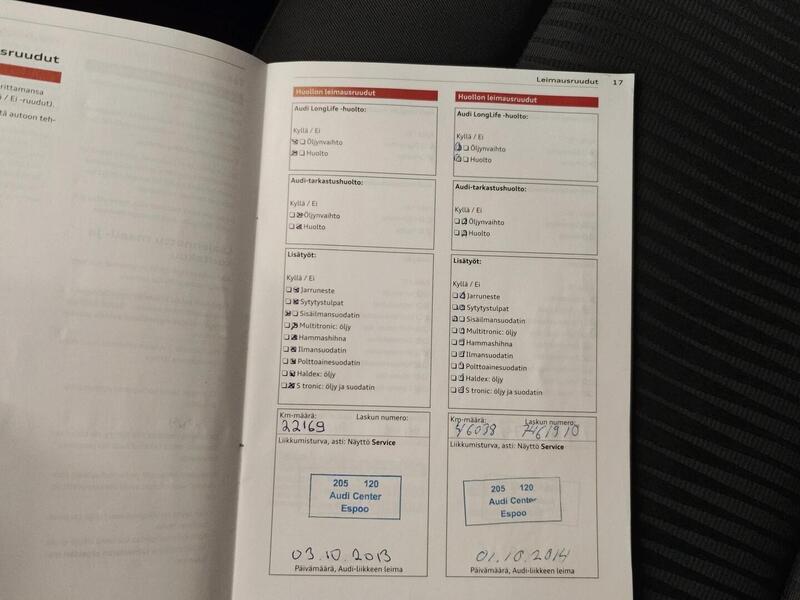 sruudut
rittamansa
/ Ei -ruudut).
tä autoon teh-
Leimausruudut 17
Huollon leimausruudut
Audi LongLife -huolto:
Kyllä / Ei
Öljynvaihto
Huolto
Audi-tarkastushuolto:
Kyllä / Ei
Öljynvaihto
Huolto
Lisätyöt:
Kyllä / Ei
Jarruneste
Sytytystulpat
Sisäilmansuodatin
Multitronic: öljy
Hammashihna
Ilmansuodatin
Polttoainesuodatin
Haldex: öljy
S tronic: öljy ja suodatin
Km-määrä: Laskun numero:
22169
Liikkumisturva, asti: Näyttö Service
205 120
Audi Center
Espoo
03.10.2013
Päivämäärä, Audi-liikkeen leima
Huollon leimausruudut
Audi LongLife -huolto:
Kyllä / Ei
Öljynvaihto
Huolto
Audi-tarkastushuolto:
Kyllä / Ei
Öljynvaihto
Huolto
Lisätyöt:
Kyllä / Ei
Jarruneste
Sytytystulpat
Sisäilmansuodatin
Multitronic: öljy
Hammashihna
Ilmansuodatin
Polttoainesuodatin
Haldex: öljy
S tronic: öljy ja suodatin
Km-määrä: Laskun numero:
46038 7461910
Liikkumisturva, asti: Näyttö Service
205 120
Audi Center
Espoo
01.10.2014
Päivämäärä, Audi-liikkeen leima